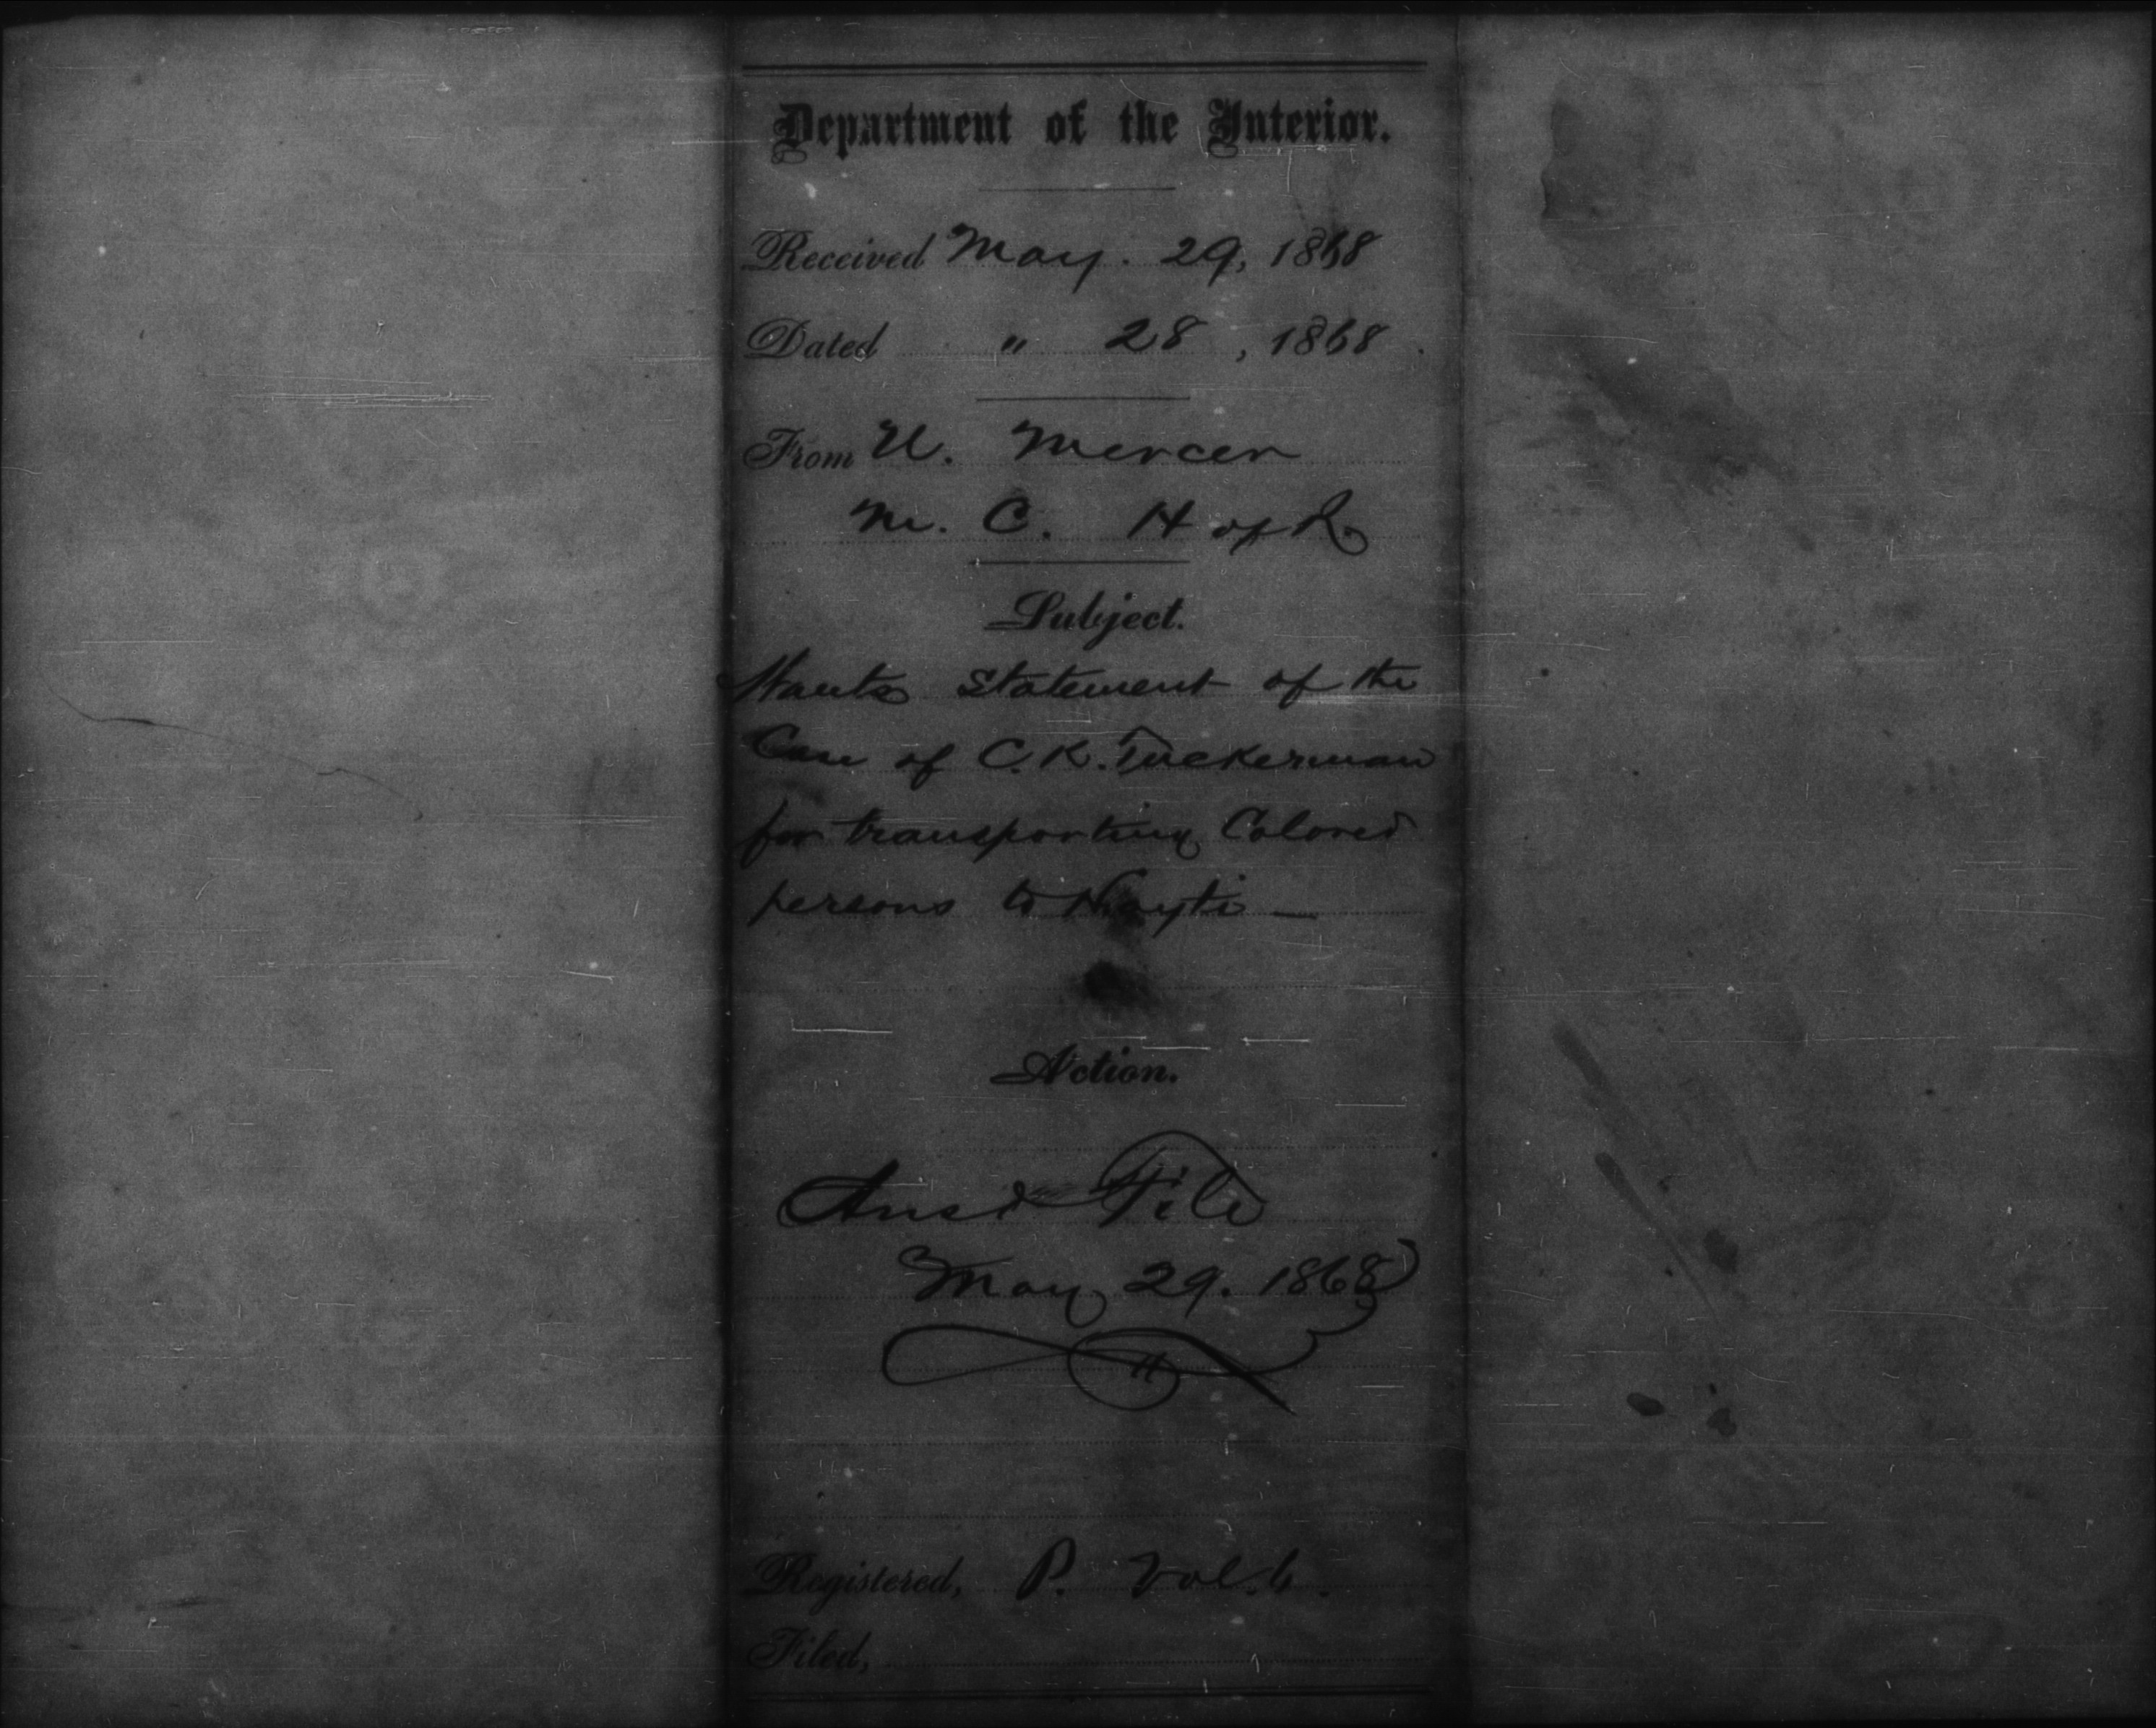 Department of the Interior.
Received May. 29, 1868
Dated " 28, 1868.
From U. Mercer
M. C. H of R.
Subject.
Wants statement of the
Case of C. K. Tuckerman
for transporting Colored
persons to Hayti —
Action.
Ansd File
May 29. 1868
H
Registered, P. Vol. 6.
Filed,